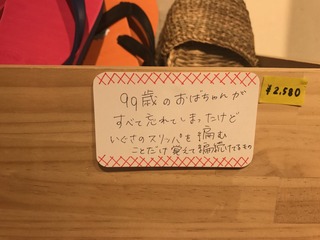 99歳のおばちゃんが
すべて忘れてしまったけど
いぐさのスリッパを編む
ことだけ覚えて編み続けてるもの
¥2,580